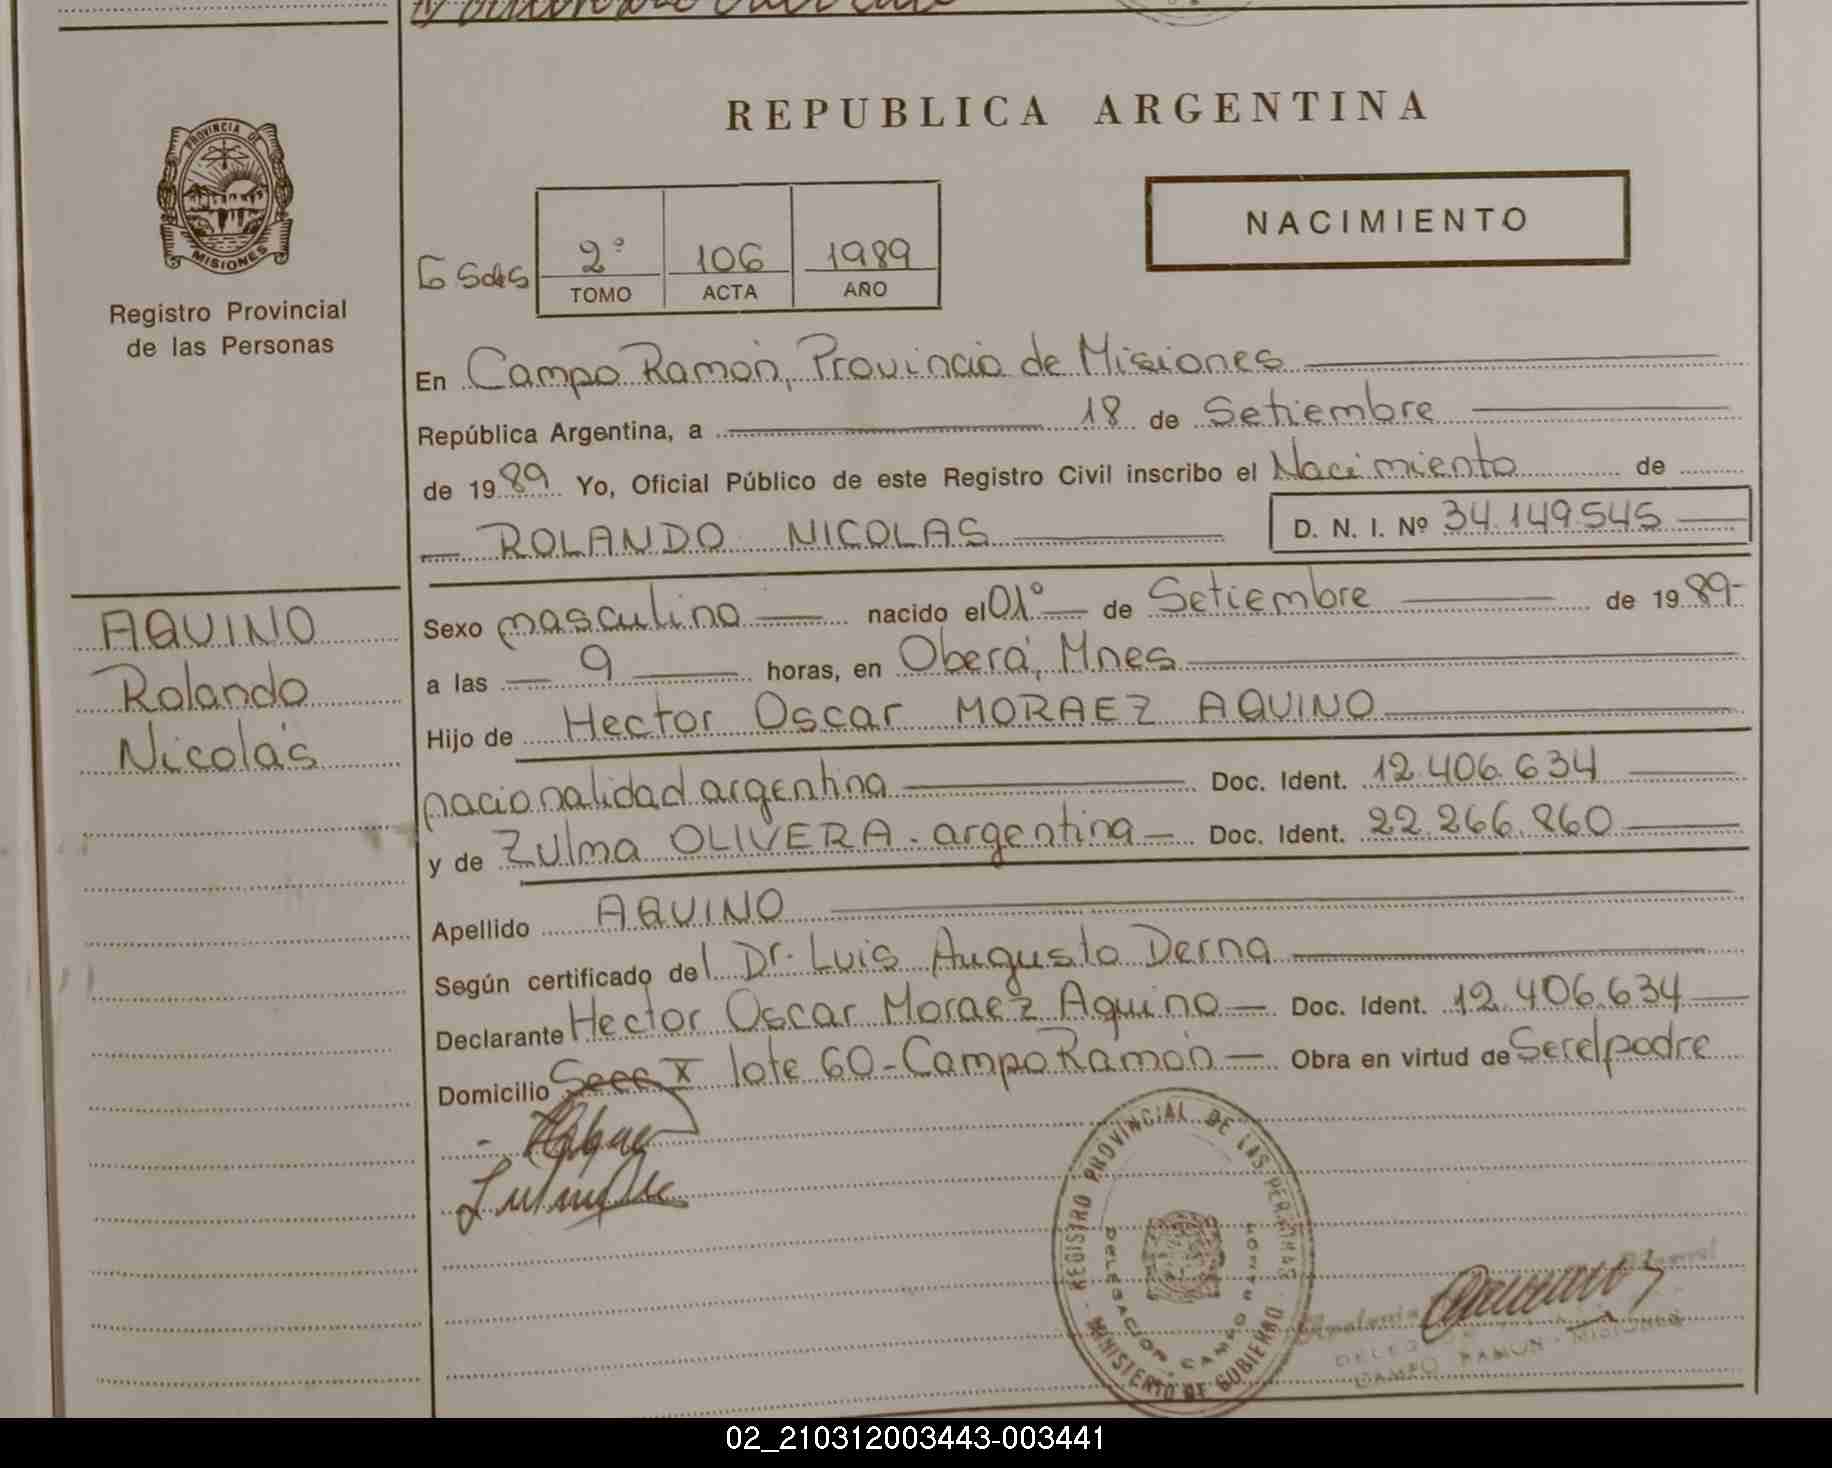 REPUBLICA ARGENTINA
PROVINCIA DE
MISIONES
Registro Provincial
de las Personas
NACIMIENTO
2° 106 1989
TOMO ACTA AÑO
En Campo Ramón, Provincia de Misiones
República Argentina, a 18 de Setiembre
de 1989 Yo, Oficial Público de este Registro Civil inscribo el Nacimiento de
ROLANDO NICOLAS D. N. I. Nº 34.149.545
AQUINO
Rolando
Nicolás
Sexo masculino nacido el 01° de Setiembre de 1989-
a las 9 horas, en Oberá, Mnes
Hijo de Hector Oscar MORAEZ AQUINO
nacionalidad argentina Doc. Ident. 12.406.634
y de Zulma OLIVERA - argentina Doc. Ident. 22.266.860
Apellido AQUINO
Según certificado del Dr. Luis Augusto Derna
Declarante Hector Oscar Moraez Aquino Doc. Ident. 12.406.634
Domicilio Secc X lote 60 - Campo Ramón Obra en virtud de Ser el padre
REGISTRO PROVINCIAL DE LAS PERSONAS
DELEGACION CAMPO RAMON
MINISTERIO DE GOBIERNO
CAMPO RAMON - MISIONES
02_210312003443-003441